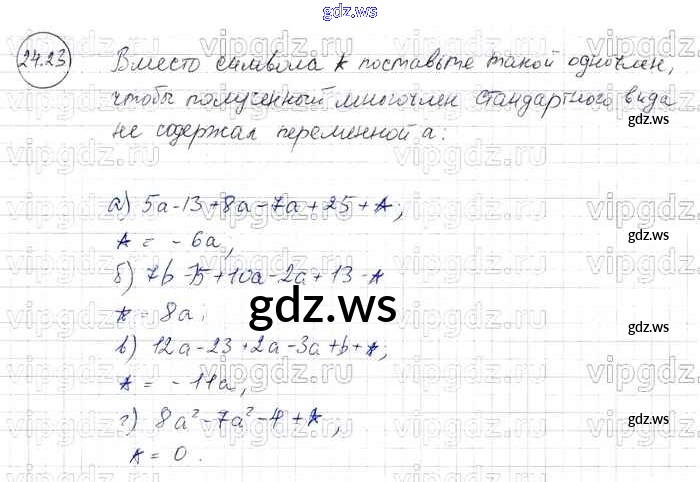 gdz.ws
24.23 Вместо символа * поставьте такой одночлен,
чтобы полученный многочлен стандартного вида
не содержал переменной a:
а) 5a-13+8a-7a+25+*;
* = -6a;
б) 7b-15+10a-2a+13-*
* = 8a;
в) 12a-23+2a-3a+b+*;
* = -11a;
г) 8a²-7a²-4+*;
* = 0.
gdz.ws
gdz.ws
gdz.ws
gdz.ws
gdz.ws
vipgdz.ru